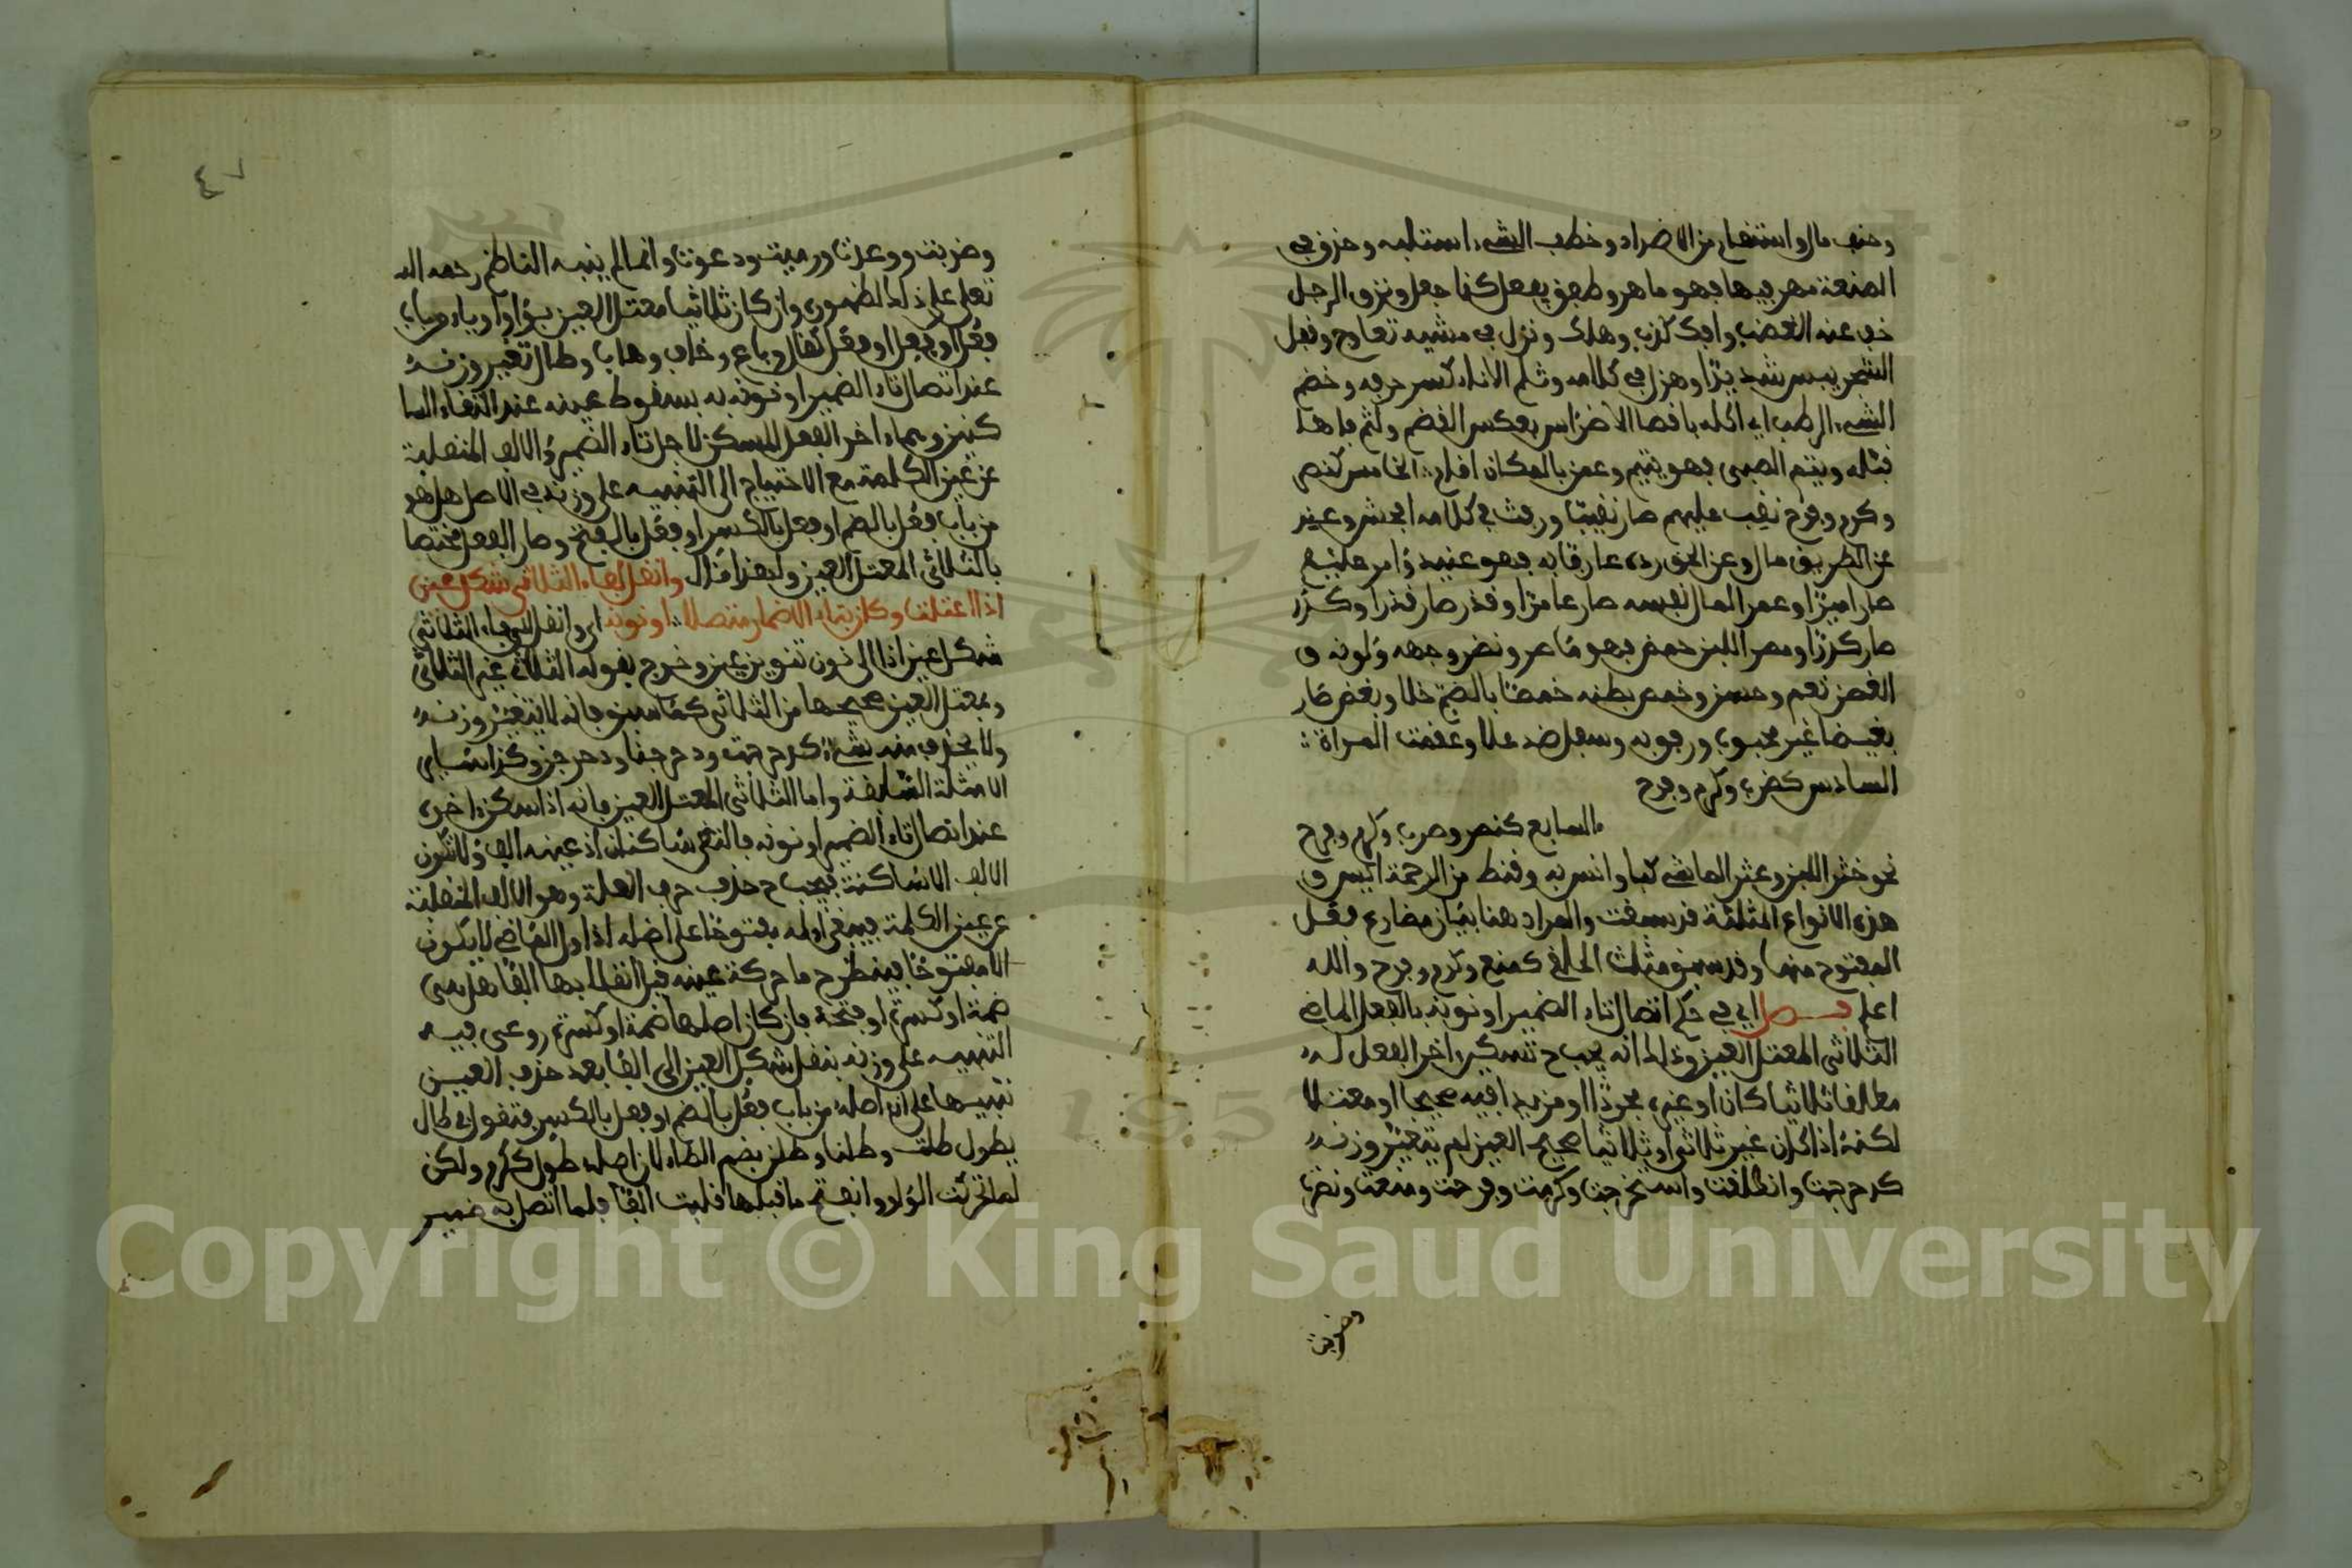 وحنف مال واستنعار من الاضداد وخطف الشيء استلبه وحذق في
الصنعة مهر فيها فهو ماهر وطفق يفعل كذا جعل ونزق الرجل
خف عند الغضب وافك كذب وهلك ونزل في مشيه تعارج وقحل
الشجر يبس شديدا وهزل في كلامه وثلم الاناء كسر حرفه وخضم
الشيء الرطب اي اكله باقصا الاضراس بعكس القضم ولثم فاها
قبله ويتم الصبي فهو يتيم وعمن بالمكان اقام الخامس كنصر
وكرم وفرح نقب عليهم صار نقيبا ورفث في كلامه افحش وعند
عن الطريق مال وعن الحق رده عارفا به فهو عنيد وامر عليهم
صار اميرا وعمر المال نفسه صار عامرا وقذر صار قذرا وكدر
صار كدرا ومصر اللبن حمض فهو ماصر ونضر وجهه ولونه و
الغصن نعم وحسن وخمص بطنه خمصا بالضم خلا وبغض صار
بغيضا غير محبوب ورجونه وسفل ضد علا وعقمت المراة
السادس كضرب وكرم وفرح
السابع كنصر وضرب وكرم وفرح
نحو خثر اللبن وعثر الماشي كبا وانس به وقنط من الرحمة ايس و
هذه الانواع المثلثة قد سبقت والمراد هنا بيان مضارع فعل
المفتوح منها وقد سبق مثلث الحلقي كمنع وكرم وفرح والله
اعلم فصل اي في حكم اتصال تاء الضمير او نونه بالفعل الماضي
الثلاثي المعتل العين وذلك انه يجب ح تسكين اخر الفعل له
مطلقا ثلاثيا كان او غيره مجردا او مزيدا فيه صحيحا او معتلا
لكنه اذا كان غير ثلاثي او ثلاثيا صحيح العين لم يتغير وزنه
كدحرجت وانطلقت واستخرجت وكرمت وفرحت ومنعت ونصرت
وضربت
٤٧
وضربت ووعدت ورميت ودعوت وانما لم ينبه الناظم رحمه الله
تعلى على ذلك لظهوره وان كان ثلاثيا معتل العين بواو او ياء وصاب
فعل او فعل او فعل كقال وباع وخاف وهاب وطال تغير وزنه
عند اتصال تاء الضمير او نونه به بسقوط عينه عند التقاء السا
كنين وهما اخر الفعل المسكن لاجل تاء الضمير والالف المنقلبة
عن عين الكلمة مع الاحتياج الى التنبيه على وزنه في الاصل هل هو
من باب فعل بالضم او فعل بالكسر او فعل بالفتح وصار الفعل مختصا
بالثلاثي المعتل العين ولهذا قال وانقل لفاء الثلاثي شكل عين
اذا اعتلت وكان بتاء الاضمار متصلا او نونه اي وانقل الى فاء الثلاثي
شكل عين اذا الى نون تنوين عين وخرج بقوله الثلاثي غير الثلاثي
وبمعتل العين صحيحها من الثلاثي كما سبق فانه لا يتغير وزنه
ولا يحذف منه شيء كدحرجت ودحرجنا ودحرجن وكذا سائر
الامثلة السابقة واما الثلاثي المعتل العين فانه اذا سكن اخره
عند اتصال تاء الضمير او نونه فالتقى ساكنان اذ عينه الف ولا تكون
الالف الا ساكنة فيجب ح حذف حرف العلة وهو الالف المنقلبة
عن عين الكلمة فيبقى اوله مفتوحا على اصله اذ اول الماضي لا يكون
الا مفتوحا فينظر ح ما حركة عينه قبل انقلابها الفا هل هي
ضمة او كسرة او فتحة فان كان اصلها ضمة او كسرة روعي فيه
التنبيه على وزنه بنقل شكل العين الى الفا بعد حذف العين
تنبيها على ان اصله من باب فعل بالضم او فعل بالكسر فتقول في طال
يطول طلت وطلنا وطلن بضم الطاء لان اصله طول ككرم ولكن
لما تحركت الواو وانفتح ما قبلها قلبت الفا فلما اتصل به ضمير
Copyright © King Saud University
195